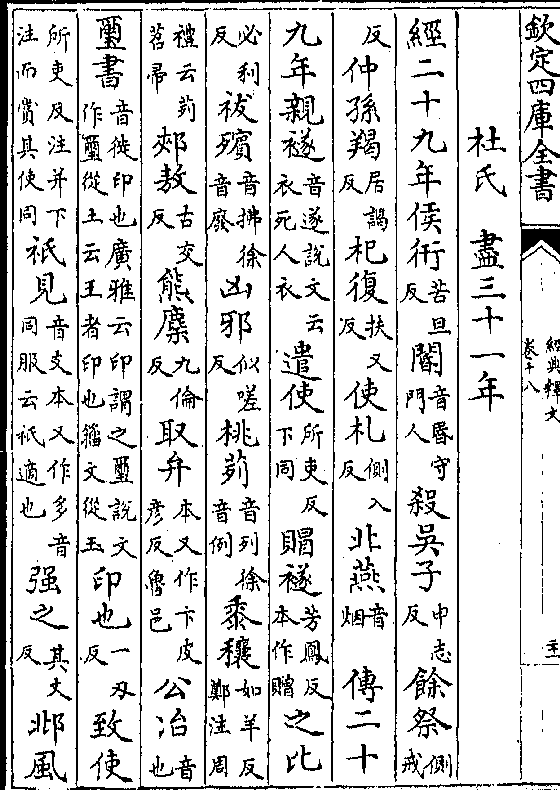 欽定四庫全書
經典釋文
卷十八
杜氏　盡三十一年
經二十九年侯衎苦旦反閽音昏守門人殺吳子申志反餘祭側戒
反仲孫羯居謁反杞復扶又反使札側入反北燕音烟　傳二十
九年親襚音遂說文云衣死人衣遣使所吏反下同賵襚芳鳳反本作贈之比
必利反祓殯音拂徐音廢凶邪似嗟反桃茢音列徐音例黍穰如羊反鄭注周
禮云茢苕帚郟敖古交反熊麇九倫反取弁本又作卞皮彥反魯邑公冶音也
璽書音徙印也廣雅云印謂之璽說文作壐從土云王者印也籀文從玉印也一刃反致使
所吏及注并下注而賞其使同祇見音支本又作多音同服云祇適也强之其丈反邶風